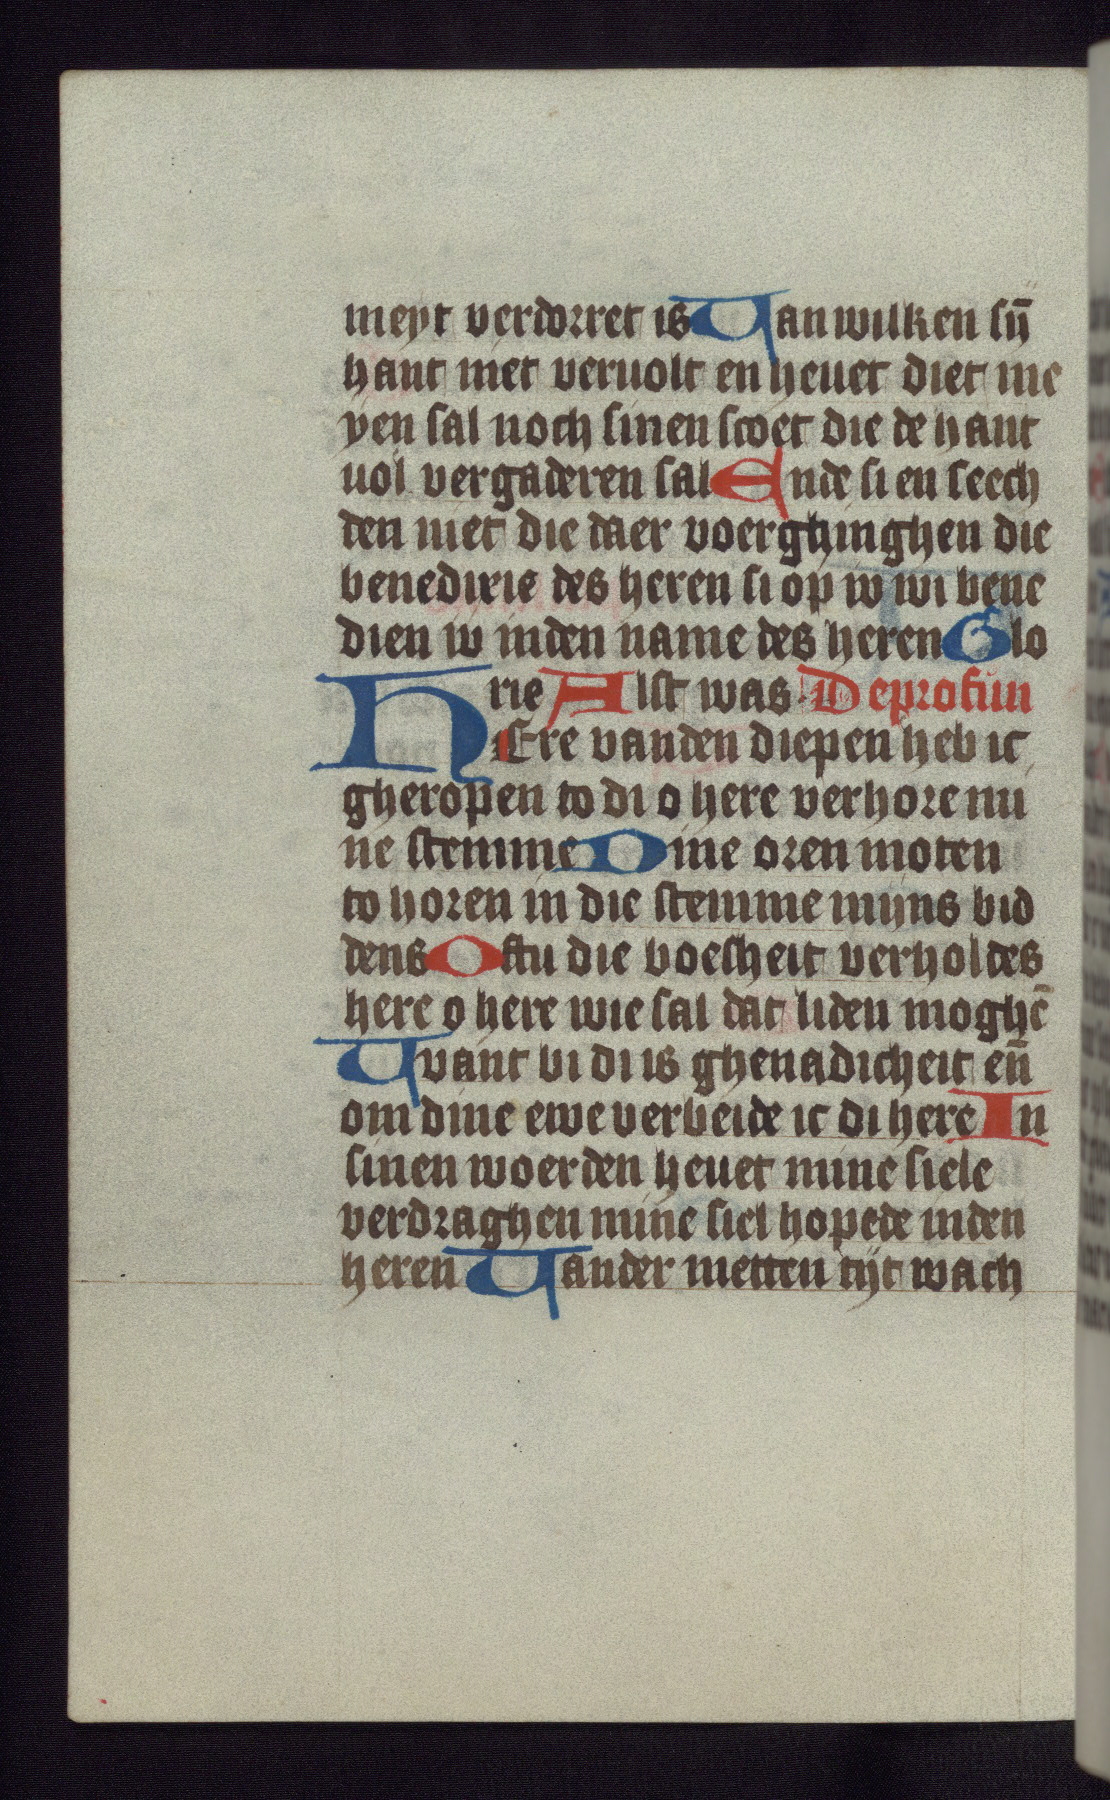 meyt verdorret is Van wilken sȳ
hant niet veruolt en heuet diet me
yen sal noch sinen scoet die de hant
uol vergaderen sal Ende si en seech
den niet die daer voerghinghen die
benedixie des heren si op w wi bene
dien w inden name des heren Glo
rie Alst was. De profun
HEre vanden diepen heb ic
gheropen to di o here verhore mi
ne stemme Dine oren moten
to horen in die stemme mijns bid
dens Oftu die boesheit verholdes
here o here wie sal dat liden moghē
Vvant bi di is ghenadicheit en̄
om dine ewe verbeide ic di here In
sinen woerden heuet mine siele
verdraghen mine siel hopede inden
heren Vander metten tijt wach